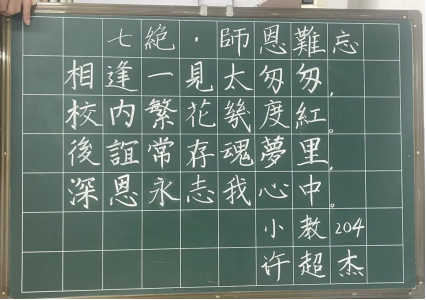 七絕·師恩難忘
相逢一見太匆匆,
校内繁花幾度紅。
後誼常存魂夢里,
深恩永志我心中。
小教204
许超杰